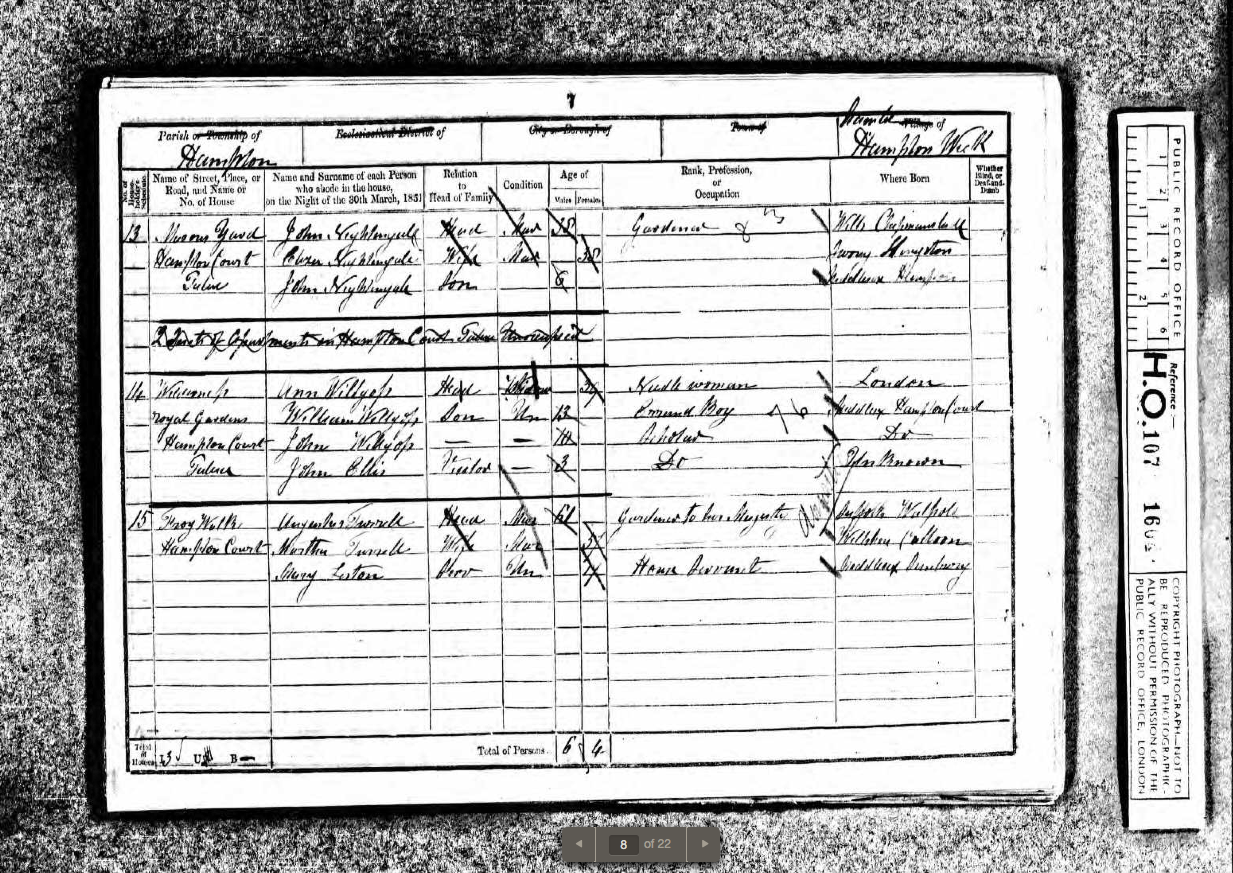 7
Parish or Township of
Ecclesiastical District of
City or Borough of
Town of
Hamlet Village of
Hampton
Hampton Wick
Name of Street, Place, or Road, and Name or No. of House
Name and Surname of each Person who abode in the house, on the Night of the 30th March, 1851
Relation to Head of Family
Condition
Age of
Males Females
Rank, Profession, or Occupation
Where Born
Whether Blind, or Deaf-and-Dumb
13 Yard John Nightingale Head Mar 38 Gardener Wilts
Hampton Court Nightingale Wife Mar 38
Palace John Nightingale Son 6 Middlesex Hampton
2 Suits of Apartments in Hampton Court Palace Unoccupied
14 Ann Willgoss Head Widow Needle woman London
Royal Gardens William Willgoss Son Un 13 Errand Boy Middlesex Hampton Court
Hampton Court John Willgoss — — 10 Scholar Do
Palace John Ellis Visitor — 3 Do Unknown
15 Frog Walk Augustus Turrell Head Mar 61 Gardener to her Majesty Suffolk Walpole
Hampton Court Martha Turrell Wife Mar
Mary Serv Un House Servant Middlesex Sunbury
Total of Houses
I 3 U B —
Total of Persons
6 4
PUBLIC RECORD OFFICE
1 2 3 4 5 6
1 2
Reference:—
H.O. 107
COPYRIGHT PHOTOGRAPH—NOT TO BE REPRODUCED PHOTOGRAPHICALLY WITHOUT PERMISSION OF THE PUBLIC RECORD OFFICE, LONDON
8 of 22